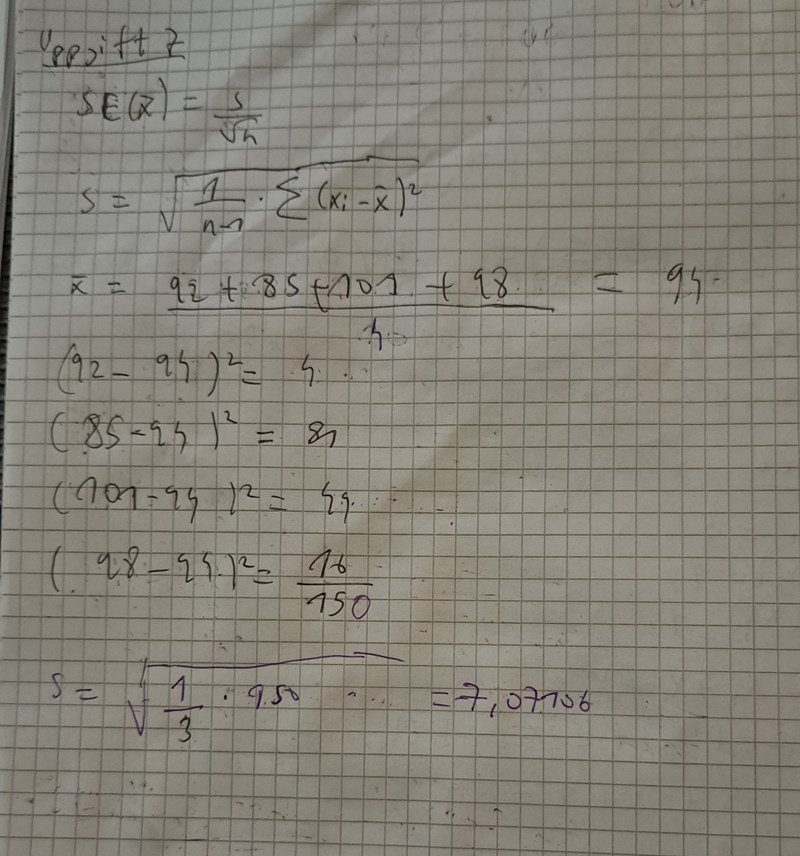 Uppgift 2
SE(x̄) = s/√n
s = √(1/(n-1) · Σ(xi - x̄)²)
x̄ = (92 + 85 + 101 + 98)/4 = 94
(92 - 94)² = 4
(85 - 94)² = 81
(101 - 94)² = 49
(98 - 94)² = 16
150
s = √(1/3 · 150) = 7,07106